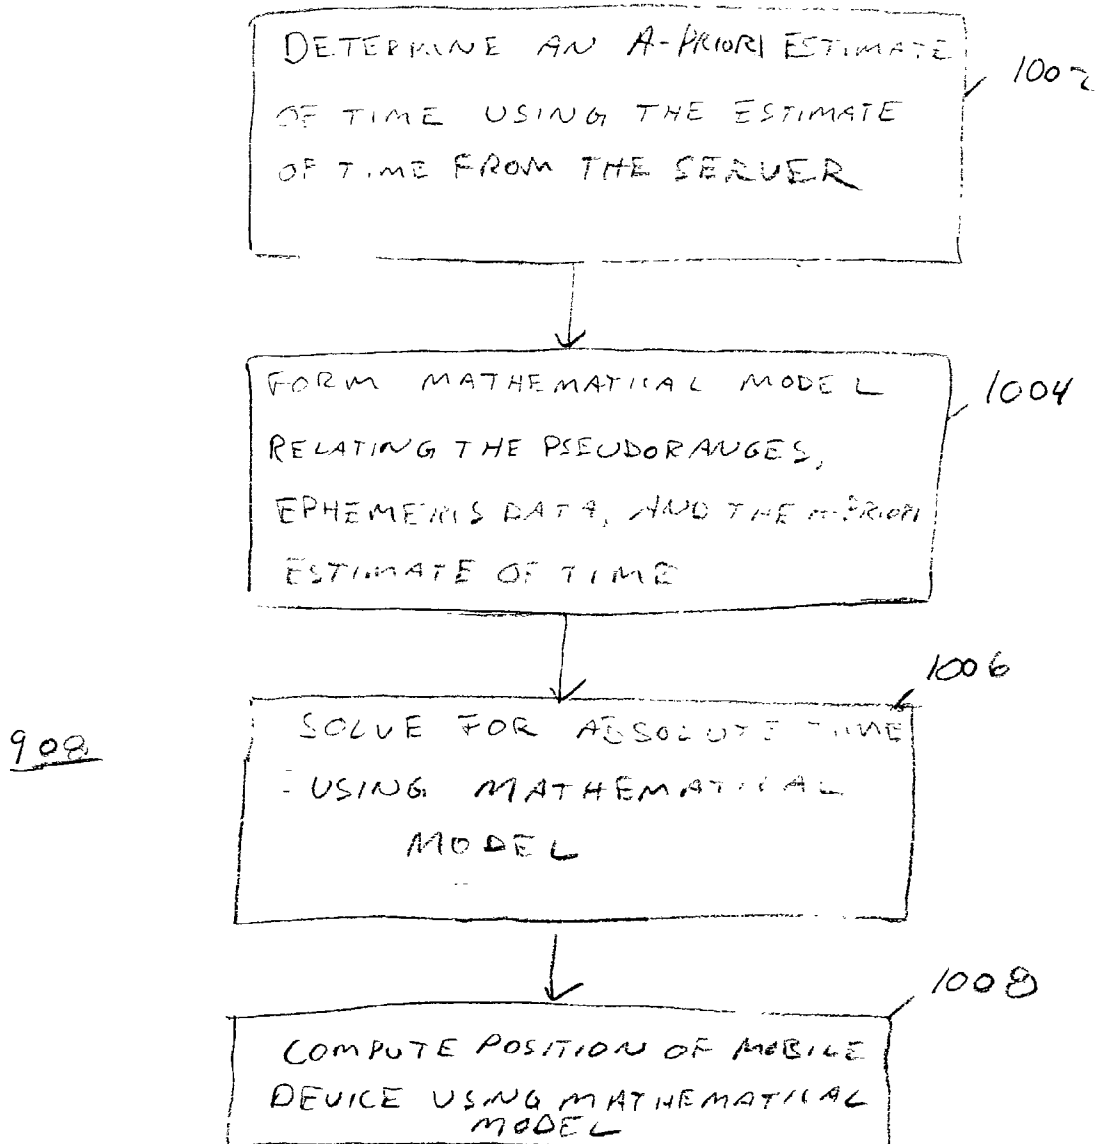 DETERMINE AN A-PRIORI ESTIMATE
1002
OF TIME USING THE ESTIMATE
OF TIME FROM THE SERVER
FORM MATHEMATICAL MODEL
1004
RELATING THE PSEUDORANGES,
EPHEMERIS DATA, AND THE A-PRIORI
ESTIMATE OF TIME
1006
SOLVE FOR ABSOLUTE TIME
908
USING MATHEMATICAL
MODEL
1008
COMPUTE POSITION OF MOBILE
DEVICE USING MATHEMATICAL
MODEL